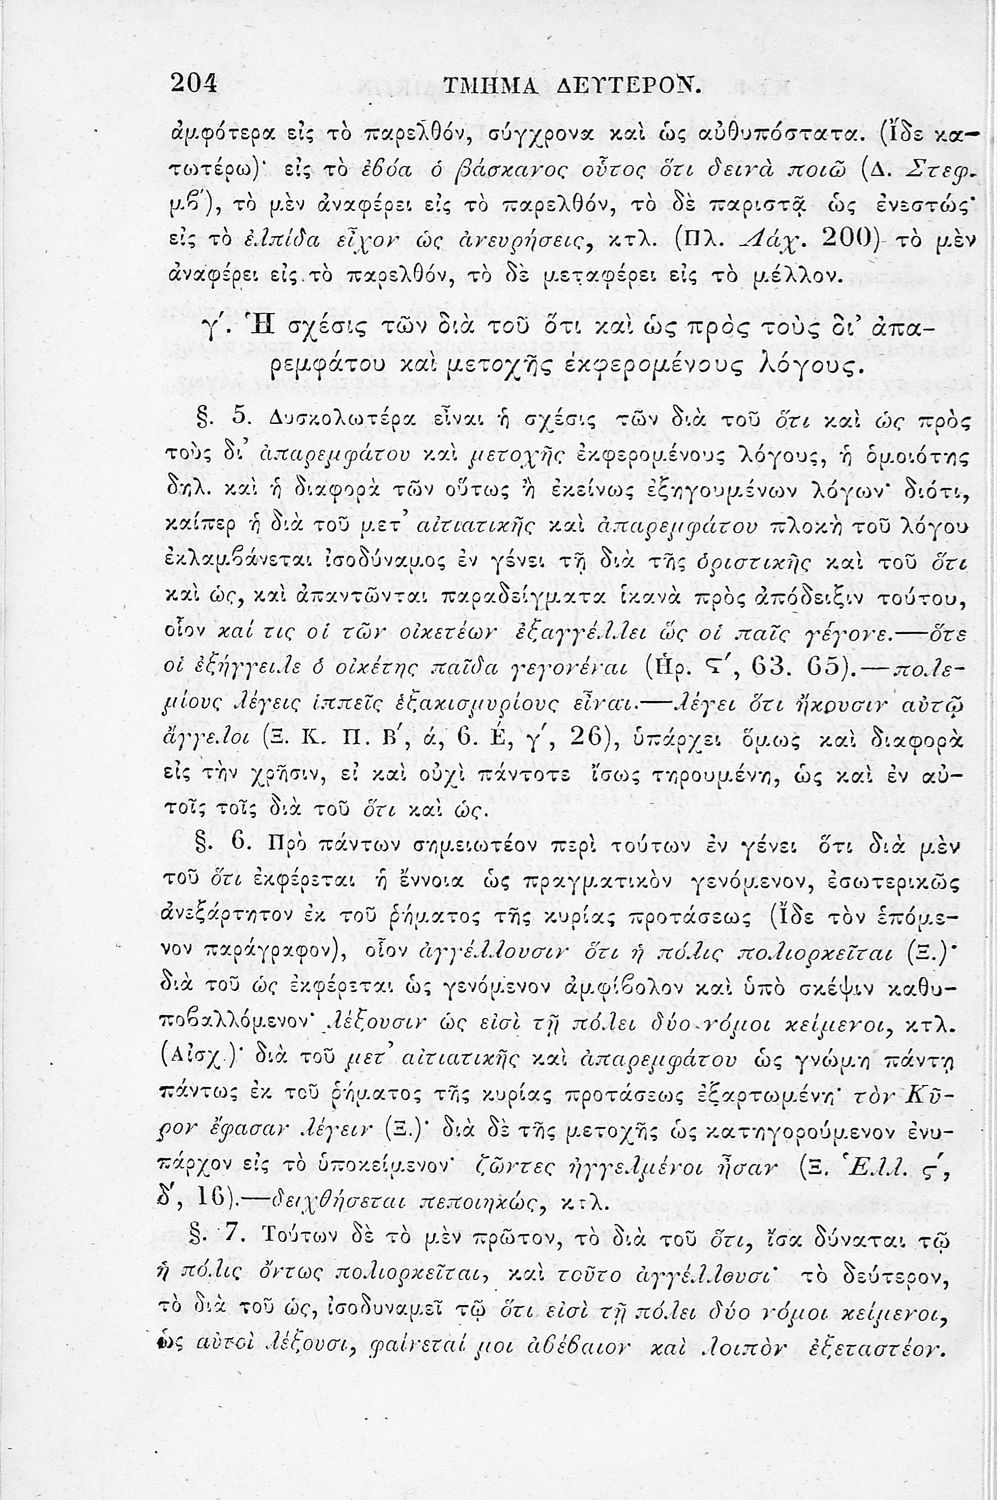 204 ΤΜΗΜΑ ΔΕΥΤΕΡΟΝ.
ἀμφότερα εἰς τὸ παρελθόν, σύγχρονα καὶ ὡς αὐθυπόστατα. (Ἴδε κα-
τωτέρω)· εἰς τὸ ἐβόα ὁ βάσκανος οὗτος ὅτι δεινὰ ποιῶ (Δ. Στεφ.
μβ′), τὸ μὲν ἀναφέρει εἰς τὸ παρελθόν, τὸ δὲ παριστᾷ ὡς ἐνεστώς·
εἰς τὸ ἐλπίδα εἶχον ὡς ἀνευρήσεις, κτλ. (Πλ. Λάχ. 200) τὸ μὲν
ἀναφέρει εἰς τὸ παρελθόν, τὸ δὲ μεταφέρει εἰς τὸ μέλλον.
γ′. Ἡ σχέσις τῶν διὰ τοῦ ὅτι καὶ ὡς πρὸς τοὺς δι’ ἀπα-
ρεμφάτου καὶ μετοχῆς ἐκφερομένους λόγους.
§. 5. Δυσκολωτέρα εἶναι ἡ σχέσις τῶν διὰ τοῦ ὅτι καὶ ὡς πρὸς
τοὺς δι’ ἀπαρεμφάτου καὶ μετοχῆς ἐκφερομένους λόγους, ἡ ὁμοιότης
δηλ. καὶ ἡ διαφορὰ τῶν οὕτως ἢ ἐκείνως ἐξηγουμένων λόγων· διότι,
καίπερ ἡ διὰ τοῦ μετ’ αἰτιατικῆς καὶ ἀπαρεμφάτου πλοκὴ τοῦ λόγου
ἐκλαμβάνεται ἰσοδύναμος ἐν γένει τῇ διὰ τῆς ὁριστικῆς καὶ τοῦ ὅτι
καὶ ὡς, καὶ ἀπαντῶνται παραδείγματα ἱκανὰ πρὸς ἀπόδειξιν τούτου,
οἷον καί τις οἱ τῶν οἰκετέων ἐξαγγέλλει ὥς οἱ παῖς γέγονε.—ὅτε
οἱ ἐξήγγειλε ὁ οἰκέτης παῖδα γεγονέναι (Ἡρ. Ϛ′, 63. 65).—πολε-
μίους λέγεις ἱππεῖς ἑξακισμυρίους εἶναι.—λέγει ὅτι ἤκουσιν αὐτῷ
ἄγγελοι (Ξ. Κ. Π. Β′, ά, 6. Έ, γ′, 26), ὑπάρχει ὅμως καὶ διαφορὰ
εἰς τὴν χρῆσιν, εἰ καὶ οὐχὶ πάντοτε ἴσως τηρουμένη, ὡς καὶ ἐν αὐ-
τοῖς τοῖς διὰ τοῦ ὅτι καὶ ὡς.
§. 6. Πρὸ πάντων σημειωτέον περὶ τούτων ἐν γένει ὅτι διὰ μὲν
τοῦ ὅτι ἐκφέρεται ἡ ἔννοια ὡς πραγματικὸν γενόμενον, ἐσωτερικῶς
ἀνεξάρτητον ἐκ τοῦ ῥήματος τῆς κυρίας προτάσεως (Ἴδε τὸν ἑπόμε-
νον παράγραφον), οἷον ἀγγέλλουσιν ὅτι ἡ πόλις πολιορκεῖται (Ξ.)·
διὰ τοῦ ὡς ἐκφέρεται ὡς γενόμενον ἀμφίβολον καὶ ὑπὸ σκέψιν καθυ-
ποβαλλόμενον· λέξουσιν ὡς εἰσὶ τῇ πόλει δύο νόμοι κείμενοι, κτλ.
(Αἰσχ.)· διὰ τοῦ μετ’ αἰτιατικῆς καὶ ἀπαρεμφάτου ὡς γνώμη πάντη
πάντως ἐκ τοῦ ῥήματος τῆς κυρίας προτάσεως ἐξαρτωμένη· τὸν Κῦ-
ρον ἔφασαν λέγειν (Ξ.)· διὰ δὲ τῆς μετοχῆς ὡς κατηγορούμενον ἐνυ-
πάρχον εἰς τὸ ὑποκείμενον· ζῶντες ἠγγελμένοι ἦσαν (Ξ. Ἑλλ. ς′,
δ′, 16).—δειχθήσεται πεποιηκώς, κτλ.
§. 7. Τούτων δὲ τὸ μὲν πρῶτον, τὸ διὰ τοῦ ὅτι, ἴσα δύναται τῷ
ἡ πόλις ὄντως πολιορκεῖται, καὶ τοῦτο ἀγγέλλουσι· τὸ δεύτερον,
τὸ διὰ τοῦ ὡς, ἰσοδυναμεῖ τῷ ὅτι εἰσὶ τῇ πόλει δύο νόμοι κείμενοι,
ὡς αὐτοὶ λέξουσι, φαίνεταί μοι ἀβέβαιον καὶ λοιπὸν ἐξεταστέον.